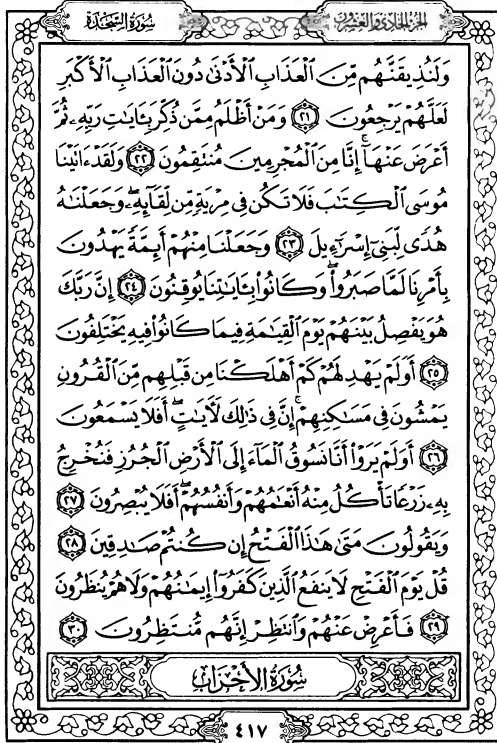 الجزء الحادي والعشرون
سورة السجدة
وَلَنُذِيقَنَّهُم مِّنَ ٱلْعَذَابِ ٱلْأَدْنَىٰ دُونَ ٱلْعَذَابِ ٱلْأَكْبَرِ
لَعَلَّهُمْ يَرْجِعُونَ ٢١ وَمَنْ أَظْلَمُ مِمَّن ذُكِّرَ بِـَٔايَٰتِ رَبِّهِۦ ثُمَّ
أَعْرَضَ عَنْهَآ ۚ إِنَّا مِنَ ٱلْمُجْرِمِينَ مُنتَقِمُونَ ٢٢ وَلَقَدْ ءَاتَيْنَا
مُوسَى ٱلْكِتَٰبَ فَلَا تَكُن فِى مِرْيَةٍ مِّن لِّقَآئِهِۦ ۖ وَجَعَلْنَٰهُ
هُدًى لِّبَنِىٓ إِسْرَٰٓءِيلَ ٢٣ وَجَعَلْنَا مِنْهُمْ أَئِمَّةً يَهْدُونَ
بِأَمْرِنَا لَمَّا صَبَرُوا۟ ۖ وَكَانُوا۟ بِـَٔايَٰتِنَا يُوقِنُونَ ٢٤ إِنَّ رَبَّكَ
هُوَ يَفْصِلُ بَيْنَهُمْ يَوْمَ ٱلْقِيَٰمَةِ فِيمَا كَانُوا۟ فِيهِ يَخْتَلِفُونَ
٢٥ أَوَلَمْ يَهْدِ لَهُمْ كَمْ أَهْلَكْنَا مِن قَبْلِهِم مِّنَ ٱلْقُرُونِ
يَمْشُونَ فِى مَسَٰكِنِهِمْ ۚ إِنَّ فِى ذَٰلِكَ لَـَٔايَٰتٍ ۖ أَفَلَا يَسْمَعُونَ
٢٦ أَوَلَمْ يَرَوْا۟ أَنَّا نَسُوقُ ٱلْمَآءَ إِلَى ٱلْأَرْضِ ٱلْجُرُزِ فَنُخْرِجُ
بِهِۦ زَرْعًا تَأْكُلُ مِنْهُ أَنْعَٰمُهُمْ وَأَنفُسُهُمْ ۖ أَفَلَا يُبْصِرُونَ ٢٧
وَيَقُولُونَ مَتَىٰ هَٰذَا ٱلْفَتْحُ إِن كُنتُمْ صَٰدِقِينَ ٢٨
قُلْ يَوْمَ ٱلْفَتْحِ لَا يَنفَعُ ٱلَّذِينَ كَفَرُوٓا۟ إِيمَٰنُهُمْ وَلَا هُمْ يُنظَرُونَ
٢٩ فَأَعْرِضْ عَنْهُمْ وَٱنتَظِرْ إِنَّهُم مُّنتَظِرُونَ ٣٠
سُورَةُ الأَحْزَابِ
٤١٧